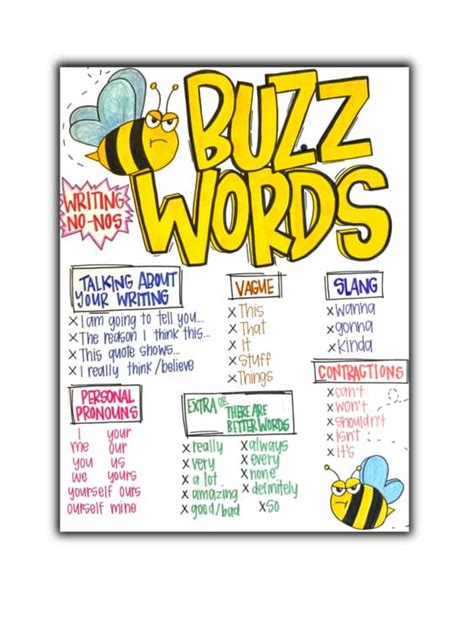 BUZZ
WORDS
WRITING
NO-NOS
TALKING ABOUT
YOUR WRITING
x I am going to tell you...
x The reason I think this...
x This quote shows...
x I really think/believe
VAGUE
x This
x That
x It
x Stuff
x Things
SLANG
x wanna
x gonna
x Kinda
CONTRACTIONS
x can't
x won't
x shouldn't
x isn't
x it's
PERSONAL
PRONOUNS
I your
me our
you us
we yours
yourself ours
ourself mine
EXTRA OR THERE ARE
BETTER WORDS
x really x always
x very x every
x a lot x none
x amazing x definitely
x good/bad x so